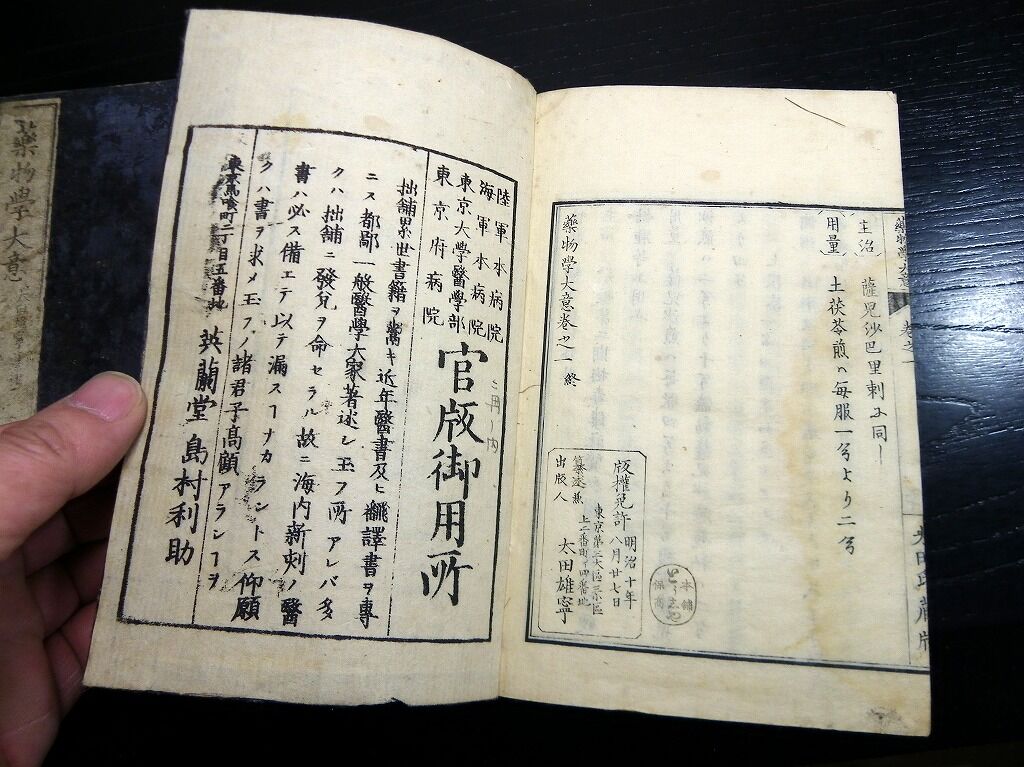 薬物學大意
主治
薩兒沙巴里刺ニ同シ
用量
土茯苓煎ハ毎服一弓より二弓
藥物學大意卷之一 終
版權免許 明治十年
八月廿七日
東京第三大區三小區
上二番町四番地
纂述兼
出版人
太田雄寧
本舗
太田氏藏版
陸軍本病院
海軍本病院
東京大學醫學部
東京府病院
官版御用所
拙舗累世書籍ヲ鬻キ近年醫書及ヒ飜譯書ヲ專
ニス都鄙一般醫學大家著述シ玉フ所アレバ多
クハ拙舗ニ發兌ヲ命セラル故ニ海内新刻ノ醫
書ハ必ス備エテ以テ漏スヿナカラントス仰願
クハ書ヲ求メ玉フノ諸君子高顧アランヿヲ
東京馬喰町二丁目五番地
英蘭堂 島村利助
藥物學大意